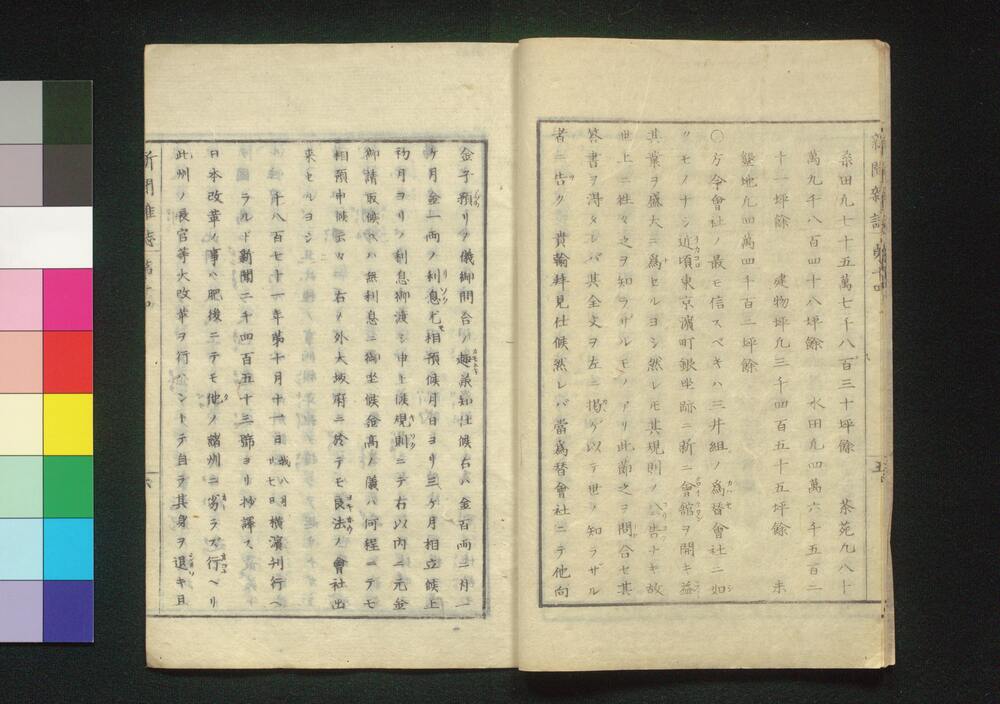 新聞雜誌 第十四
桑田凡七十五萬七千八百三十坪餘 茶苑凡八十
萬九千八百四十八坪餘 水田凡四萬六千五百二
十一坪餘 建物坪凡三千四百五十五坪餘 未
墾地凡四萬四千百二坪餘
〇方今會社ノ最モ信スベキハ三井組ノ爲替會社ニ如
クモノナシ近頃東京濱町銀坐跡ニ新ニ會館ヲ開キ益
其業ヲ盛大ニ爲セルヨシ然レモ其規則ノ公告ナキ故
世上ニ姓々之ヲ知ラザルモノアリ此節之ヲ問合セ其
答書ヲ得タレバ其全文ヲ左ニ掲ゲ以テ世ノ知ラザル
者ニ告ク 貴翰拜見仕候然レバ當爲替會社ニテ他向
五
金子預リノ儀御問合ノ趣承知仕候右ハ金百兩ニ月一
ケ月金一兩ノ利息ヲ相預候月日ヨリ三ケ月相立候上
初月ヨリノ利息御渡シ申上候規則ニテ右以内ニ元金
御請取候ヘハ無利息ニ御坐候金高ノ儀ハ何程ニテモ
相預申候云々 右ノ外大坂府ニ於テモ良法ノ會社出
來セルヨシ
千八百七十一年第十月十一日我八月廿七日横濱刊行ヘ
ラルド新聞二千四百五十三號ヨリ抄譯ス
日本改革ノ事ハ肥後ニテモ他ノ諸州ニ劣ラズ行ヘリ
此州ノ長官等大改革ヲ行ハントテ自ラ其身ヲ退キ且
新聞雜誌 第十四
六